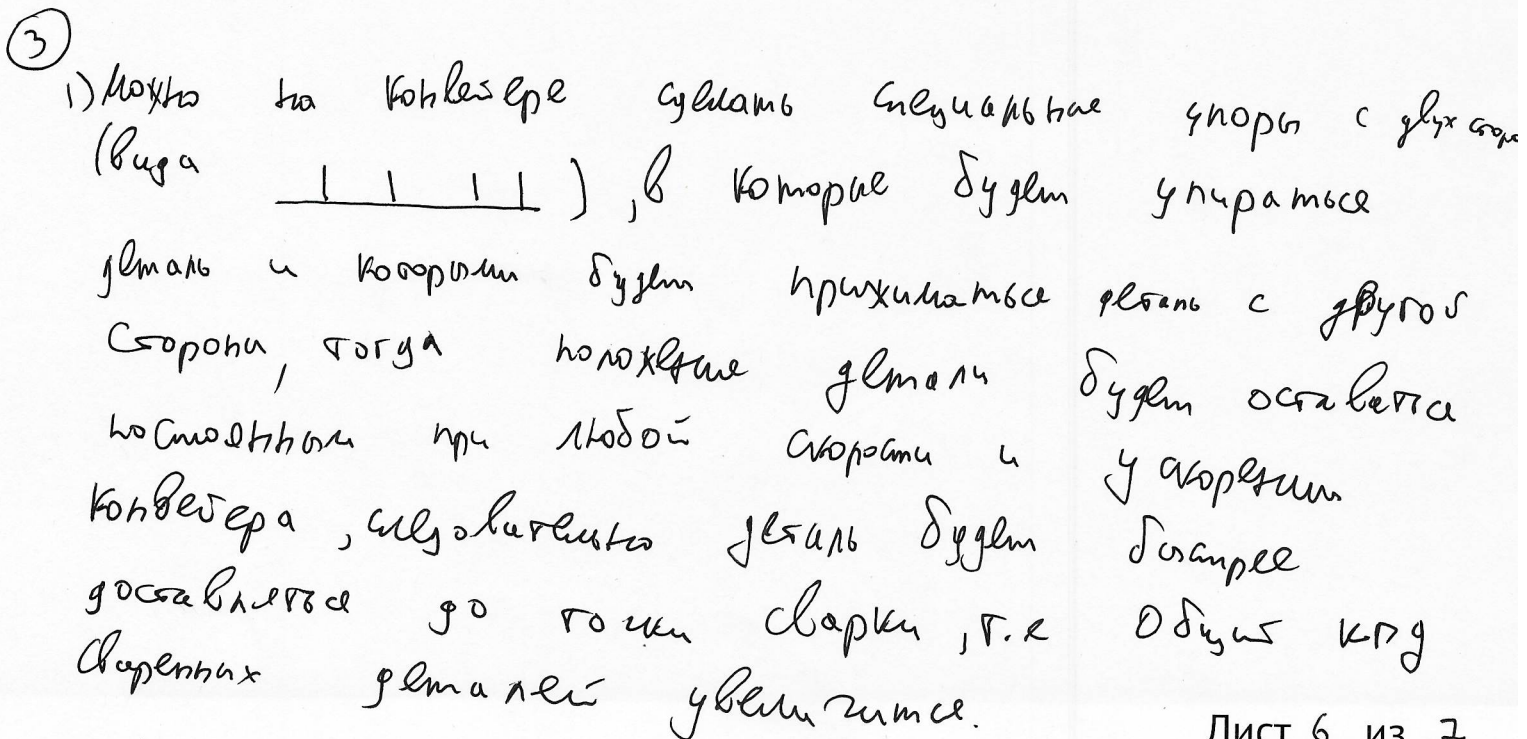 3
1) Можно на конвейере сделать специальные упоры с двух сторо
(вида ), в которые будет упираться
деталь и которыми будет прижиматься деталь с другой
стороны, тогда положение детали будет оставатся
постоянным при любой скорости и ускорении
конвейера, следовательно деталь будет быстрее
доставляться до точки сварки, т.е общий кпд
сваренных деталей увеличится.
Лист 6 из 7